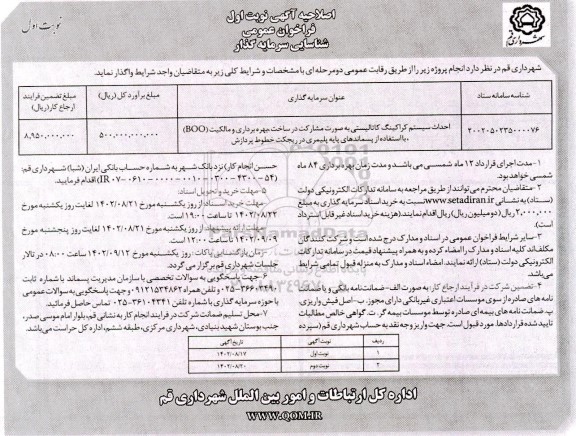 نوبت اول
شهرداری قم
اصلاحیه آگهی نوبت اول
فراخوان عمومی
شناسایی سرمایه گذار
شهرداری قم در نظر دارد انجام پروژه زیر را از طریق رقابت عمومی دو مرحله ای با مشخصات و شرایط کلی زیر به متقاضیان واجد شرایط واگذار نماید.
شناسه سامانه ستاد
عنوان سرمایه گذاری
مبلغ برآورد کل (ریال)
مبلغ تضمین فرایند ارجاع کار (ریال)
۲۰۰۲۰۵۰۲۳۵۰۰۰۰۷۶
احداث سیستم کراکینگ کاتالیستی به صورت مشارکت در ساخت، بهره برداری و مالکیت (BOO)
با استفاده از پسماندهای پایه پلیمری در ریجکت خطوط پردازش
۵۰۰,۰۰۰,۰۰۰,۰۰۰
۸,۹۵۰,۰۰۰,۰۰۰
۱- مدت اجرای قرارداد ۱۲ ماه شمسی می باشد و مدت زمان بهره برداری ۸۴ ماه
شمسی خواهد بود.
۲- متقاضیان محترم می توانند از طریق مراجعه به سامانه تدارکات الکترونیکی دولت
(ستاد) به نشانی www.setadiran.ir نسبت به خرید اسناد سرمایه گذاری به مبلغ
۲,۰۰۰,۰۰۰ ریال (دو میلیون ریال) ریال اقدام نمایند. (هزینه خرید اسناد غیر قابل استرداد
است).
۳- سایر شرایط فراخوان عمومی در اسناد و مدارک درج شده است و شرکت کنندگان
مکلف اند کلیه اسناد و مدارک را امضاء کرده و به همراه پیشنهاد قیمت در سامانه تدارکات
الکترونیکی دولت (ستاد) ارائه نمایند. امضاء اسناد و مدارک به منزله قبول تمامی شرایط
می باشد.
۴- تضمین شرکت در فرآیند ارجاع کار: به صورت الف- ضمانت نامه بانکی و یا ضمانت
نامه های صادره از سوی موسسات اعتباری غیر بانکی دارای مجوز. ب- اصل فیش واریزی.
پ- ضمانت نامه های بیمه ای صادره توسط موسسات بیمه گر. ت- گواهی خالص مطالبات
تایید شده قراردادها. مورد قبول است. جهت واریز وجه نقد به حساب شهرداری قم (سپرده
حسن انجام کار) نزد بانک شهر به شماره حساب بانکی ایران (شبا) شهرداری قم:
اقدام فرمایید.
۵- مهلت خرید و تحویل اسناد:
مهلت خرید اسناد از روز یکشنبه مورخ ۱۴۰۲/۰۸/۲۱ لغایت روز یکشنبه مورخ
ساعت ۱۹:۰۰ است.
مهلت ارائه پیشنهاد از روز یکشنبه مورخ ۱۴۰۲/۰۸/۲۱ لغایت روز پنجشنبه مورخ
۱۴۰۲/۰۹/۰۹ تا ساعت ۱۲:۰۰ است.
زمان بازگشایی پاکات: روز یکشنبه مورخ ۱۴۰۲/۰۹/۱۲ ساعت ۰۸:۰۰ در تالار
جلسات شهرداری قم برگزار می گردد.
۶- جهت پاسخگویی به سوالات تخصصی با سازمان مدیریت پسماند با شماره ثابت
و تلفن همراه ۰۹۱۲۱۵۳۴۸۶۲ و جهت پاسخگویی به سوالات عمومی
با حوزه سرمایه گذاری با شماره تلفن ۳۶۱۰۴۳۴۱-۰۲۵ تماس حاصل فرمائید.
۷- محل تسلیم ضمانت شرکت در فرایند انجام کار به نشانی قم، بلوار امام موسی صدر،
جنب بوستان شهید بنیادی، شهرداری مرکزی، طبقه ششم، اداره کل حراست می باشد.
ردیف
نوبت آگهی
تاریخ آگهی
۱
نوبت اول
۱۴۰۲/۰۸/۱۷
۲
نوبت دوم
۱۴۰۲/۰۸/۲۰
اداره کل ارتباطات و امور بین الملل شهرداری قم
WWW.QOM.IR